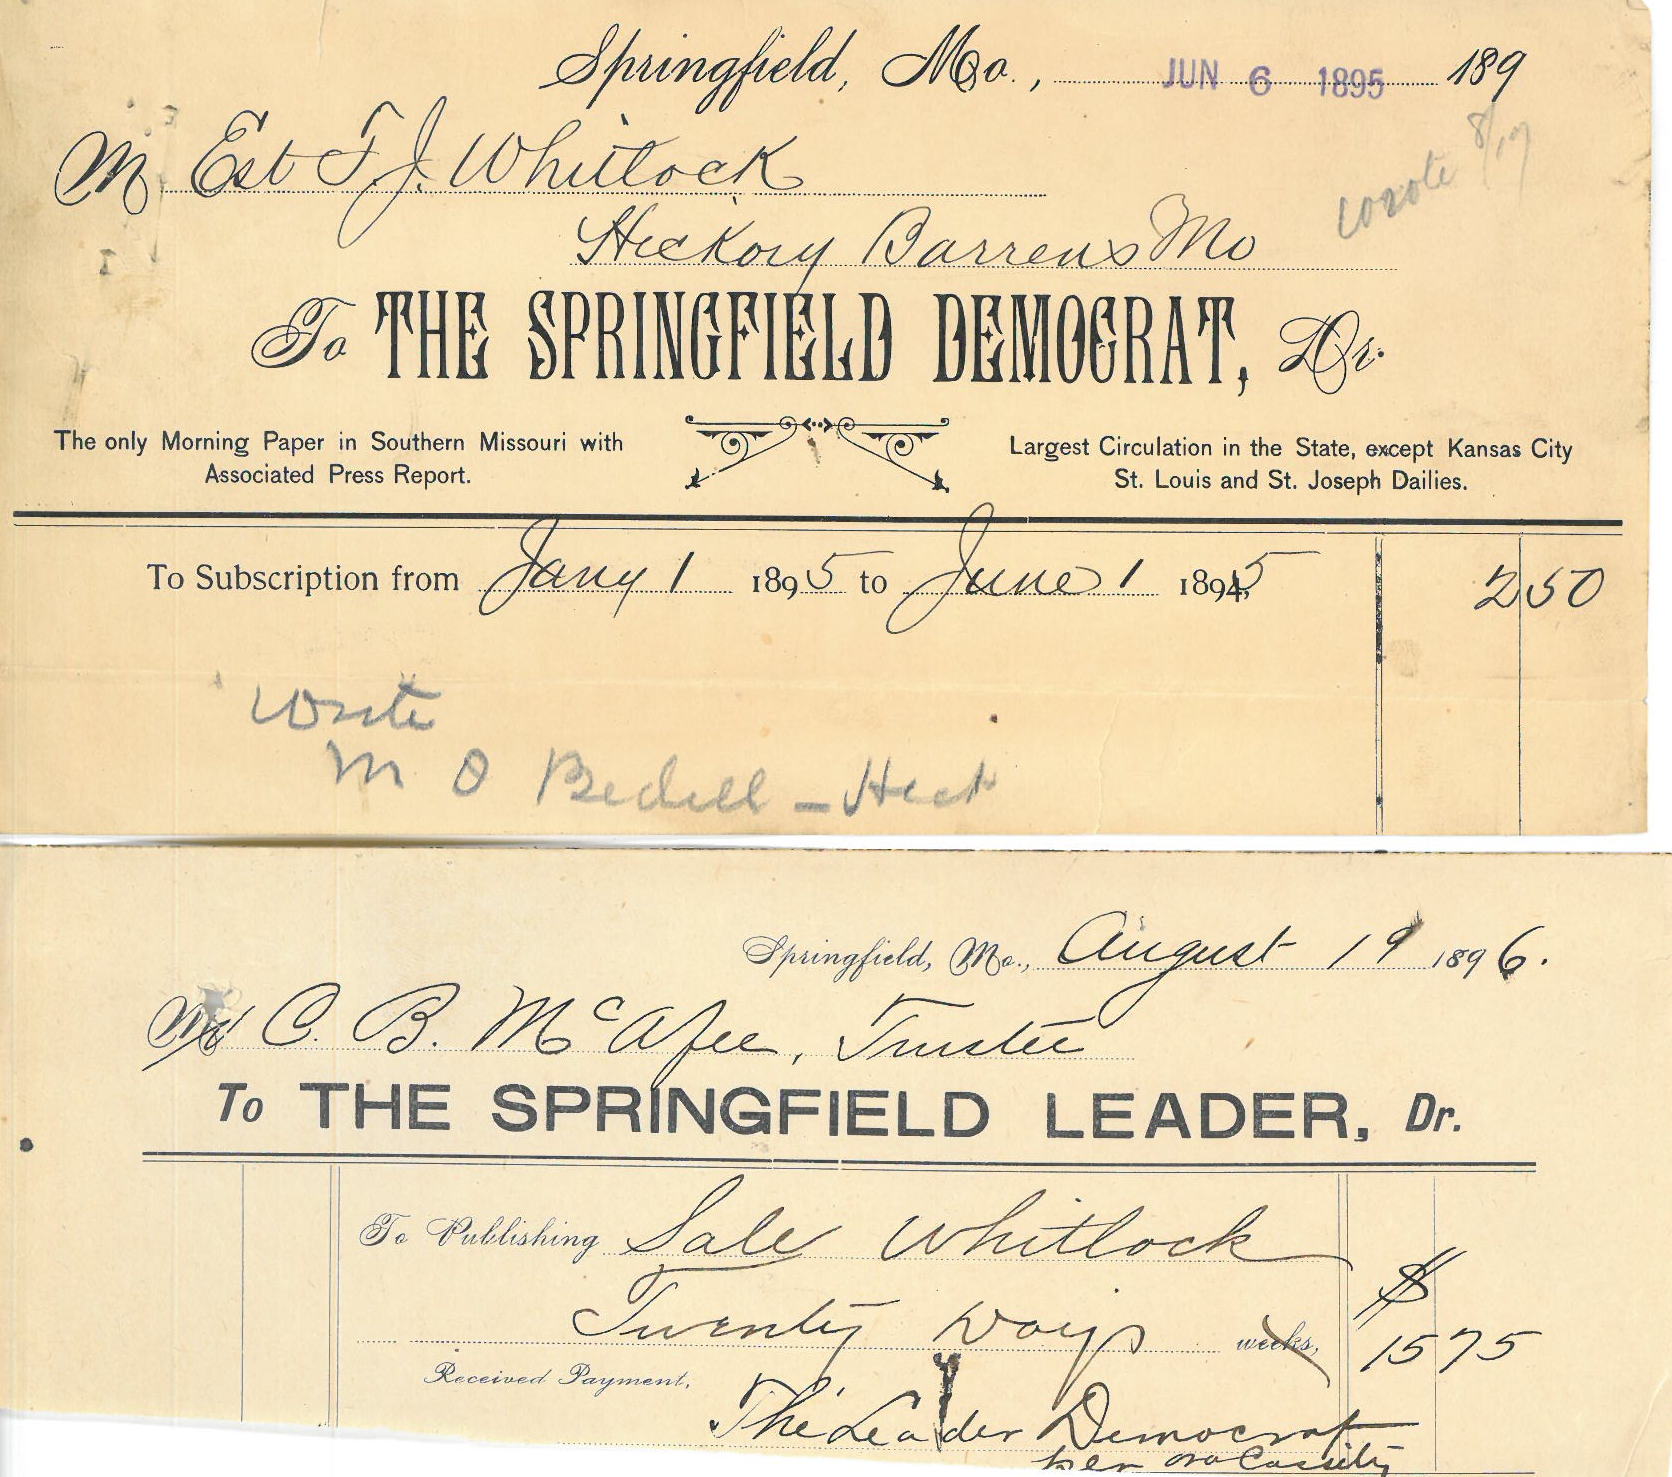 Springfield, Mo., JUN 6 1895 189
M Est T. J. Whitlock
wrote 8/17
Hickory Barrens Mo
To THE SPRINGFIELD DEMOCRAT, Dr.
The only Morning Paper in Southern Missouri with
Associated Press Report.
Largest Circulation in the State, except Kansas City
St. Louis and St. Joseph Dailies.
To Subscription from Jany 1 1895 to June 1 18945 2 50
Wrote
M O Bedell - Hect
Springfield, Mo., August 19 1896.
M C. B. McAfee, Trustee
To THE SPRINGFIELD LEADER, Dr.
To Publishing Sale Whitlock
Twenty Days weeks, $ 15 75
Received Payment,
The Leader Democrat
per Cassity